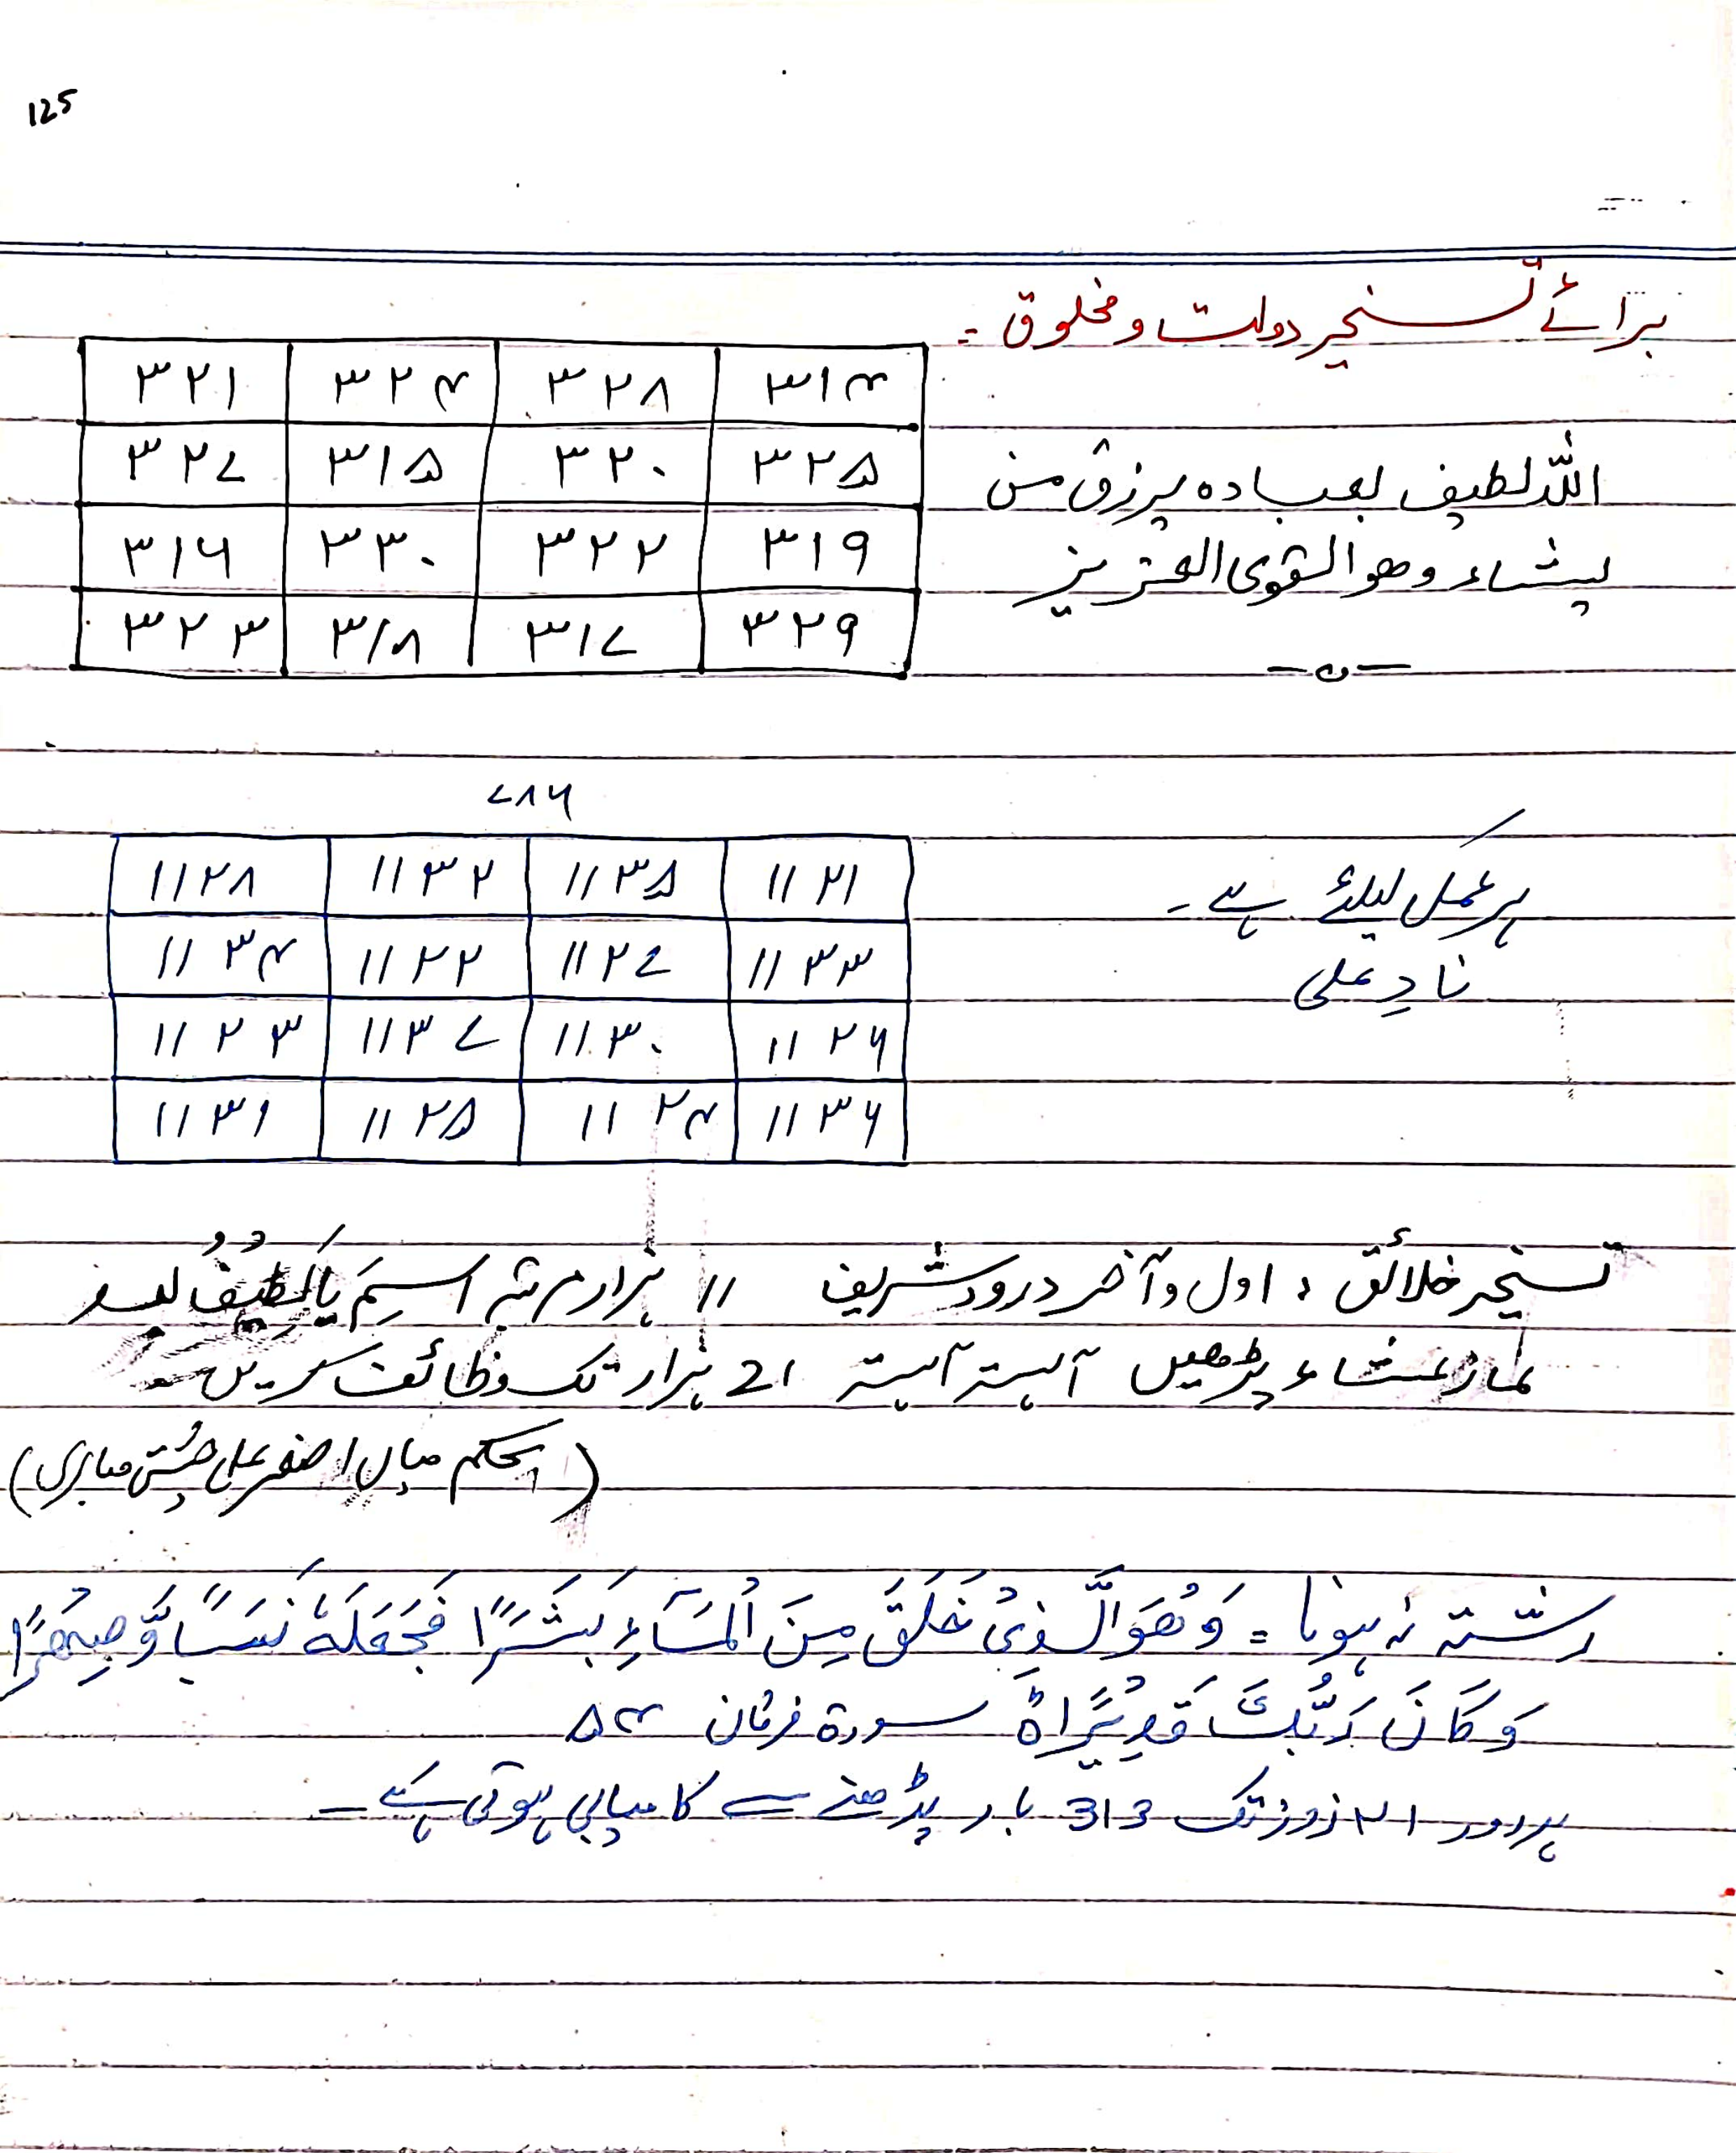 125
برائے تسخیر دولت و مخلوق =
۳۲۱ ۳۲۴ ۳۲۸ ۳۱۴
۳۲۷ ۳۱۵ ۳۲۰ ۳۲۵
۳۱۶ ۳۳۰ ۳۲۲ ۳۱۹
۳۲۳ ۳۱۸ ۳۱۷ ۳۲۹
اللہ لطیف بعبادہ یرزق من
یشاء وھو القوی العزیز
۷۸۶
۱۱۲۸ ۱۱۳۲ ۱۱۳۵ ۱۱۲۱
۱۱۳۴ ۱۱۲۲ ۱۱۲۷ ۱۱۳۳
۱۱۲۳ ۱۱۳۷ ۱۱۳۰ ۱۱۲۶
۱۱۳۱ ۱۱۲۵ ۱۱۲۴ ۱۱۳۶
ہر عمل کیلئے ہے ۔
نادِ علی
تسخیر خلائق : اول و آخر درود شریف ۱۱ ہزار مرتبہ اسم یَا لَطِیْفُ بعد
نماز عشاء پڑھیں آہستہ آہستہ 21 ہزار تک وظائف کریں ۔
(بحکم میاں اصغر علی چشتی صابری)
رشتہ نہ ہونا = وَ ھُوَ الَّذِیْ خَلَقَ مِنَ الْمَآءِ بَشَرًا فَجَعَلَہٗ نَسَبًا وَّ صِھْرًا
وَ کَانَ رَبُّکَ قَدِیْرًا سورۃ فرقان ۵۴
ہر روز ۲۱ روز تک 313 بار پڑھنے سے کامیابی ہوتی ہے ۔